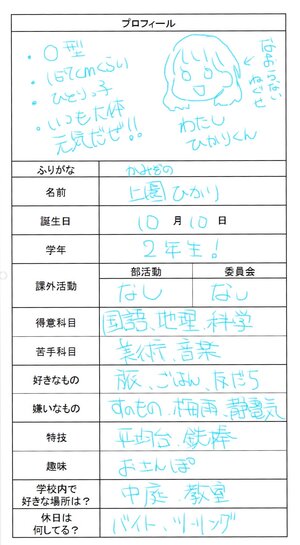 プロフィール
・O型
・157cmくらい
・ひとりっ子
・いつも大体
元気だぜ!!
なおらない
ねぐせ
わたし
ひかりくん
ふりがな
かみぞの
名前
上園 ひかり
誕生日
10 月 10 日
学年
2年生!
課外活動
部活動 委員会
なし なし
得意科目
国語、地理、科学
苦手科目
美術、音楽
好きなもの
旅、ごはん、友だち
嫌いなもの
すのもの、梅雨、静電気
特技
平均台、鉄棒
趣味
おさんぽ
学校内で
好きな場所は?
中庭、教室
休日は
何してる?
バイト、ツーリング